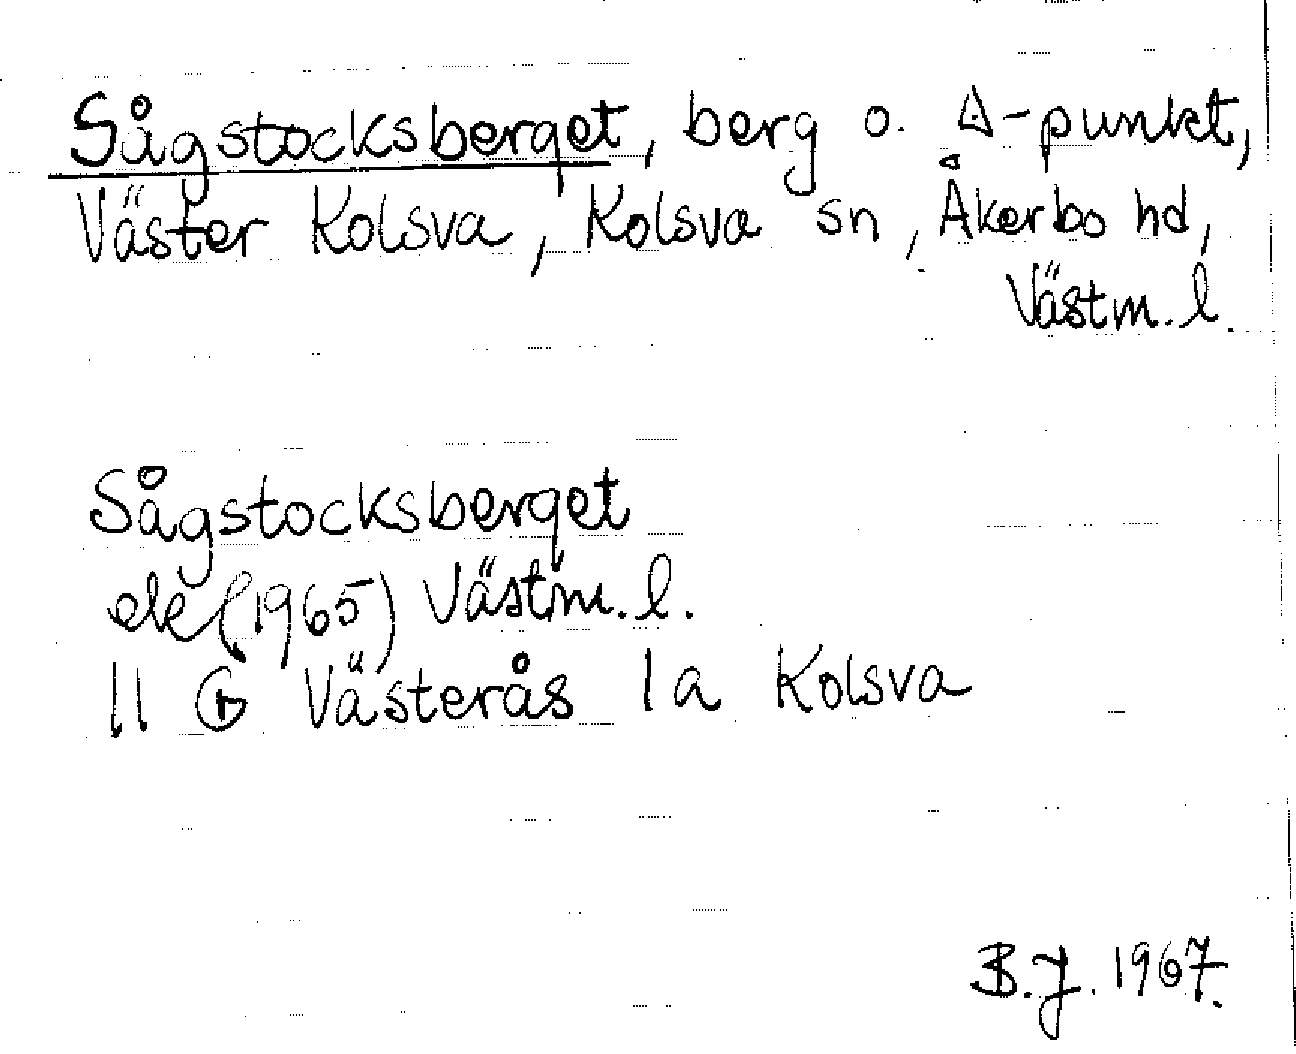 Sågstocksberget, berg o. △-punkt,
Väster Kolsva, Kolsva sn, Åkerbo hd,
Västm. l.
Sågstocksberget
ek (1965) Västm. l.
11 G Västerås 1a Kolsva
B.J. 1967.